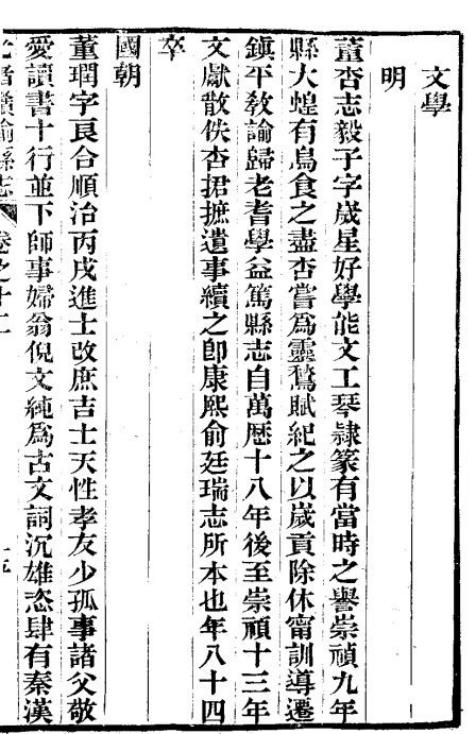 文學
明
董杏志毅子字歲星好學能文工琴隸篆有當時之譽崇禎九年
縣大蝗有鳥食之盡杏嘗爲靈鶖賦紀之以歲貢除休甯訓導遷
鎭平敎諭歸老耆學益篤縣志自萬歷十八年後至崇禎十三年
文獻散佚杏捃摭遺事續之卽康熙俞廷瑞志所本也年八十四
卒
國朝
董瑥字良合順治丙戌進士改庶吉士天性孝友少孤事諸父敬
愛讀書十行並下師事婦翁倪文純爲古文詞沉雄恣肆有秦漢
縣志 卷之十二